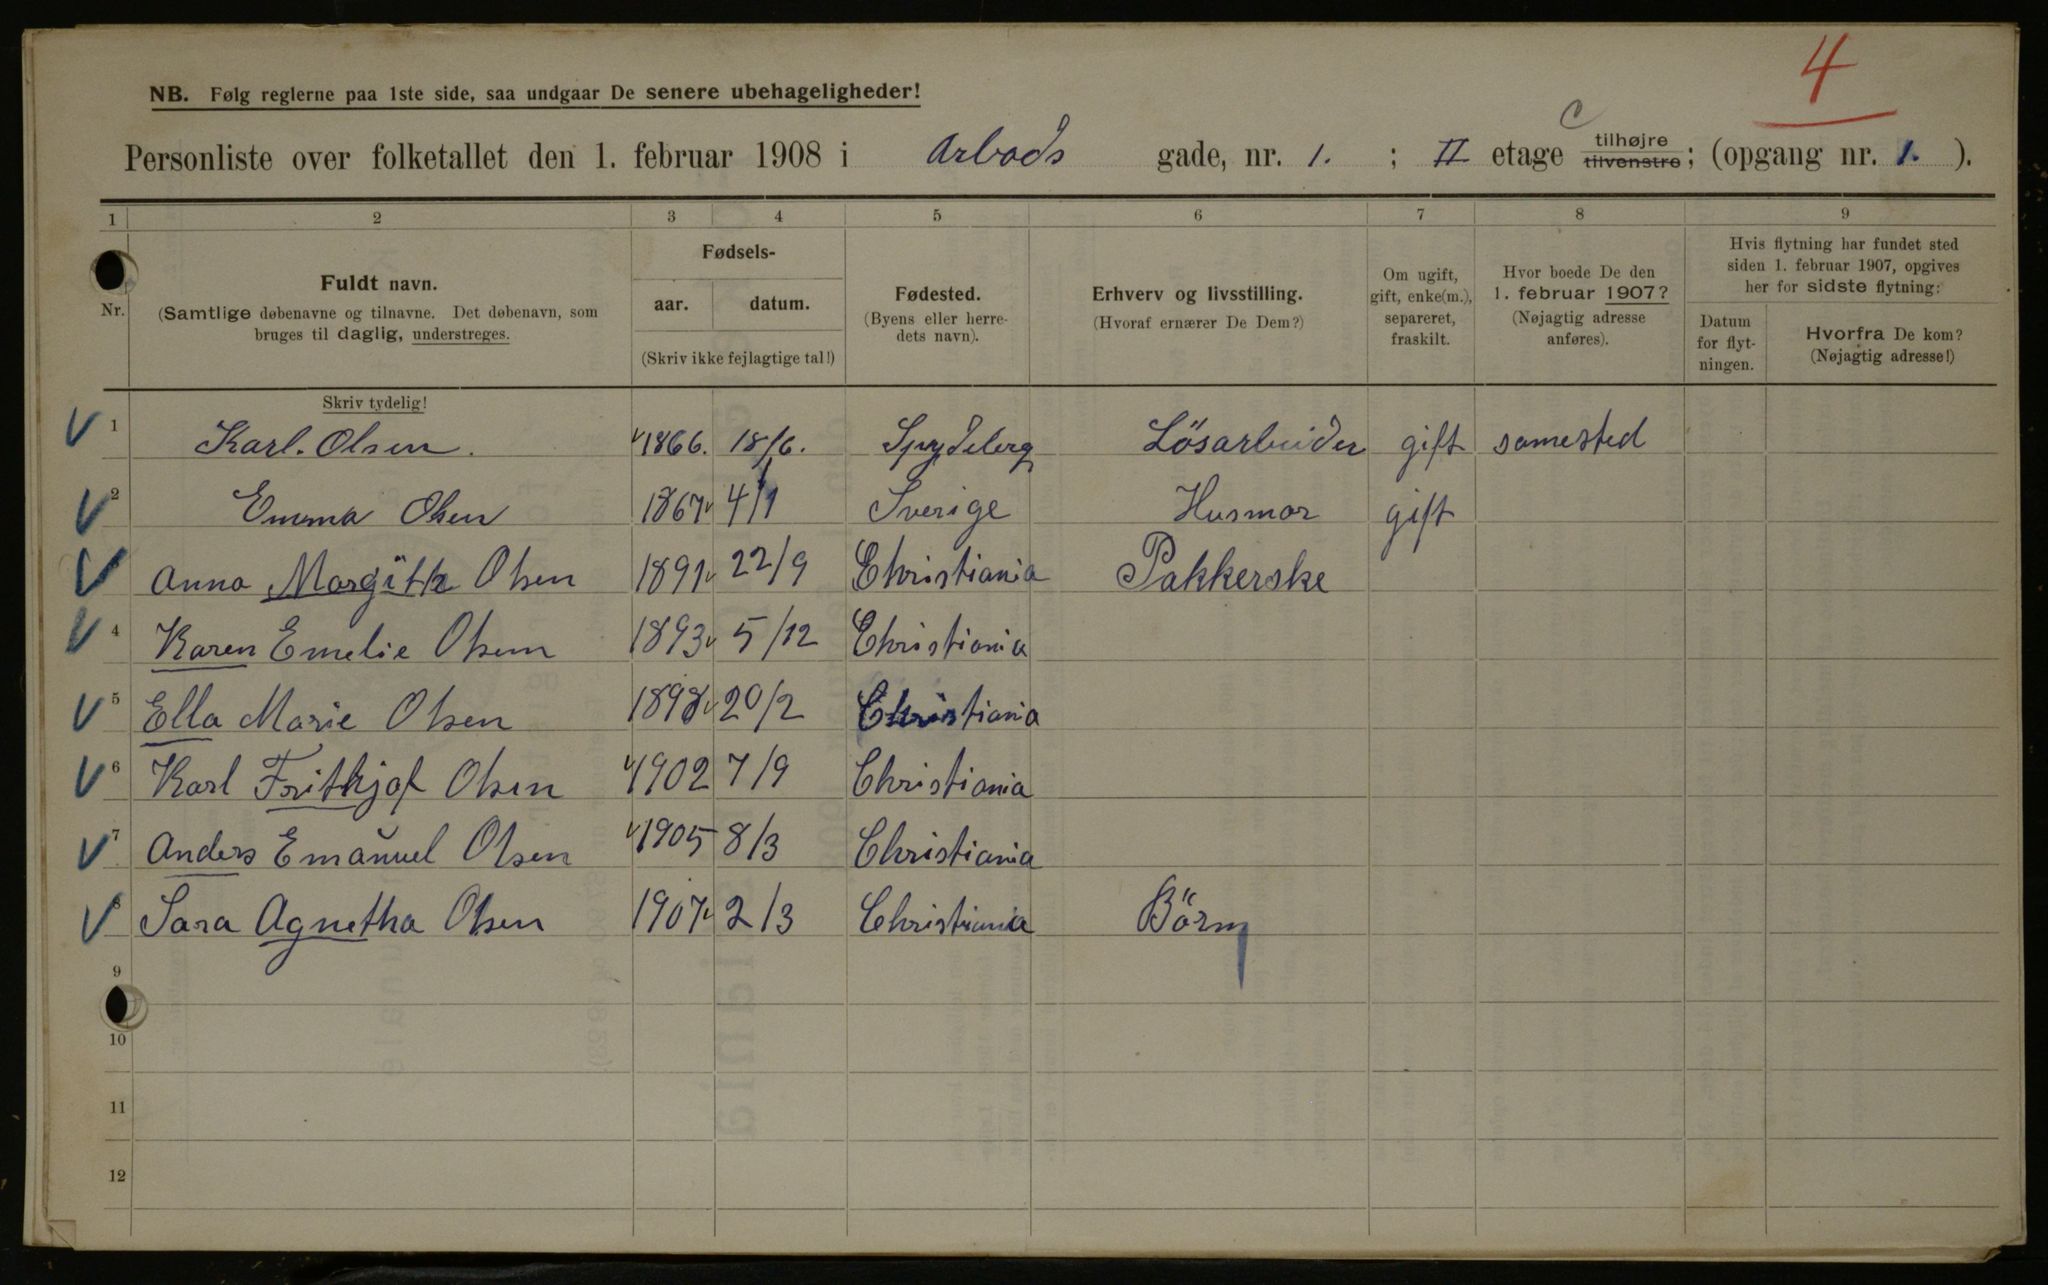 4
NB. Følg reglerne paa 1ste side, saa undgaar De senere ubehageligheder!
C
Personliste over folketallet den 1. februar 1908 i Arbods gade, nr. 1. ; II etage tilhøjre tilvenstre; (opgang nr. 1. ).
1 2 3 4 5 6 7 8 9
Nr.
Fuldt navn.
(Samtlige døbenavne og tilnavne. Det døbenavn, som
bruges til daglig, understreges.
Fødsels-
aar. datum.
(Skriv ikke fejlagtige tal!)
Fødested.
(Byens eller herre-
dets navn).
Erhverv og livsstilling.
(Hvoraf ernærer De Dem?)
Om ugift,
gift, enke(m.),
separeret,
fraskilt.
Hvor boede De den
1. februar 1907?
(Nøjagtig adresse
anføres).
Hvis flytning har fundet sted
siden 1. februar 1907, opgives
her for sidste flytning:
Datum
for flyt-
ningen.
Hvorfra De kom?
(Nøjagtig adresse!)
Skriv tydelig!
1 Karl. Olsen. 1866. 18/6. Spydeberg Lösarbeider gift samested
2 Emma Olsen 1867 4/1 Sverige Husmor gift
Anna Margith Olsen 1891 22/9 Christiania Pakkerske
4 Karen Emelie Olsen 1893 5/12 Christiania
5 Ella Marie Olsen 1898 20/2 Christiania
6 Karl Frithjof Olsen 1902 7/9 Christiania
7 Anders Emanuel Olsen 1905 8/3 Christiania
8 Sara Agnetha Olsen 1907 2/3 Christiania Börn
9
10
11
12